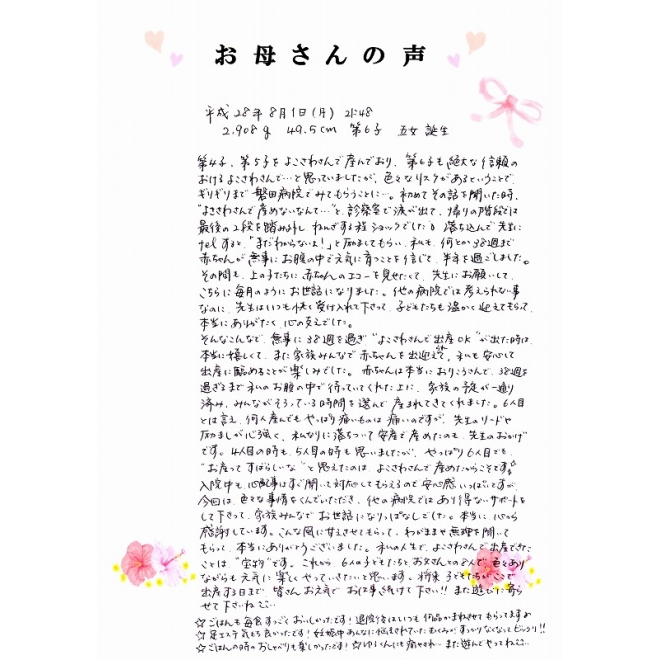 お母さんの声
平成28年8月1日(月) 21:48
2,908g 49.5cm 第6子 五女誕生
第4子、第5子をよこさわさんで産んでおり、第6子も絶大な信頼の
おけるよこさわさんで…と思っていましたが、色々なリスクがあるということで、
ギリギリまで磐田病院でみてもらうことに…。初めてその話を聞いた時、
"よこさわさんで産めないなんて…"と、診察室で涙が出て、帰りの階段では
最後の2段を踏み外し、ねんざする程ショックでした。落ち込んで先生に
telすると、「まだわからないよ!」と励ましてもらい、私も、何とか38週まで
赤ちゃんが無事にお腹の中で元気に育つことを信じて、半年を過ごしました。
その間も、上の子たちに赤ちゃんのエコーを見せたくて、先生にお願いして、
こちらに毎月のようにお世話になりました。他の病院では考えられない事
なのに、先生はいつも快く受け入れて下さって、子どもたちも温かく迎えてもらって、
本当にありがたく、心の支えでした。
そんなこんなで、無事に38週を過ぎ"よこさわさんで出産OK"が出た時は、
本当に嬉しくて、また家族みんなで赤ちゃんを出迎えて、私も安心して
出産に臨めることが楽しみでした。赤ちゃんは本当におりこうさんで、38週を
過ぎるまで私のお腹の中で待っていてくれた上に、家族の予定が一通り
済み、みんながそろっている時間を選んで産まれてきてくれました。6人目
とは言え、何人産んでもやっぱり痛いものは痛いのですが、先生のリードや
励ましが心強く、私なりに落ちついて安産で産めたのも、先生のおかげ
です。4人目の時も、5人目の時も思いましたが、やっぱり6人目でも、
"お産ってすばらしいな"と思えたのは、よこさわさんで産めたからこそです。
入院中も、心配事はすぐ聞いて対応してもらえるので安心感いっぱいですが、
今回は、色々な事情をくんでいただき、他の病院ではあり得ないサポートを
して下さって、家族みんなでお世話になりっぱなしでした。本当に心から
感謝しています。こんな風に甘えさせてもらって、わがままや無理を聞いて
もらって、本当にありがとうございました。私の人生で、よこさわさんで出産できた
ことは"宝物"です。これから、6人の子どもたちとお父さんとの8人で、色々あり
ながらも元気に楽しくやっていきたいと思います。将来子どもたちがここで
出産する日まで、皆さんお元気でお仕事され続けて下さい!!また遊びに寄ら
せて下さいね…
☆ごはんも毎食すっごくおいしかったです!退院後はいつも何品かまねさせてもらってます
☆足エステ気持ち良かったです!妊娠中あんなに悩まされていたむくみがすっかりなくなってビックリ!!
☆ごはんの時のおしゃべりも楽しかったです!☆ゆうくんにも癒やされ…また遊んでやってね…